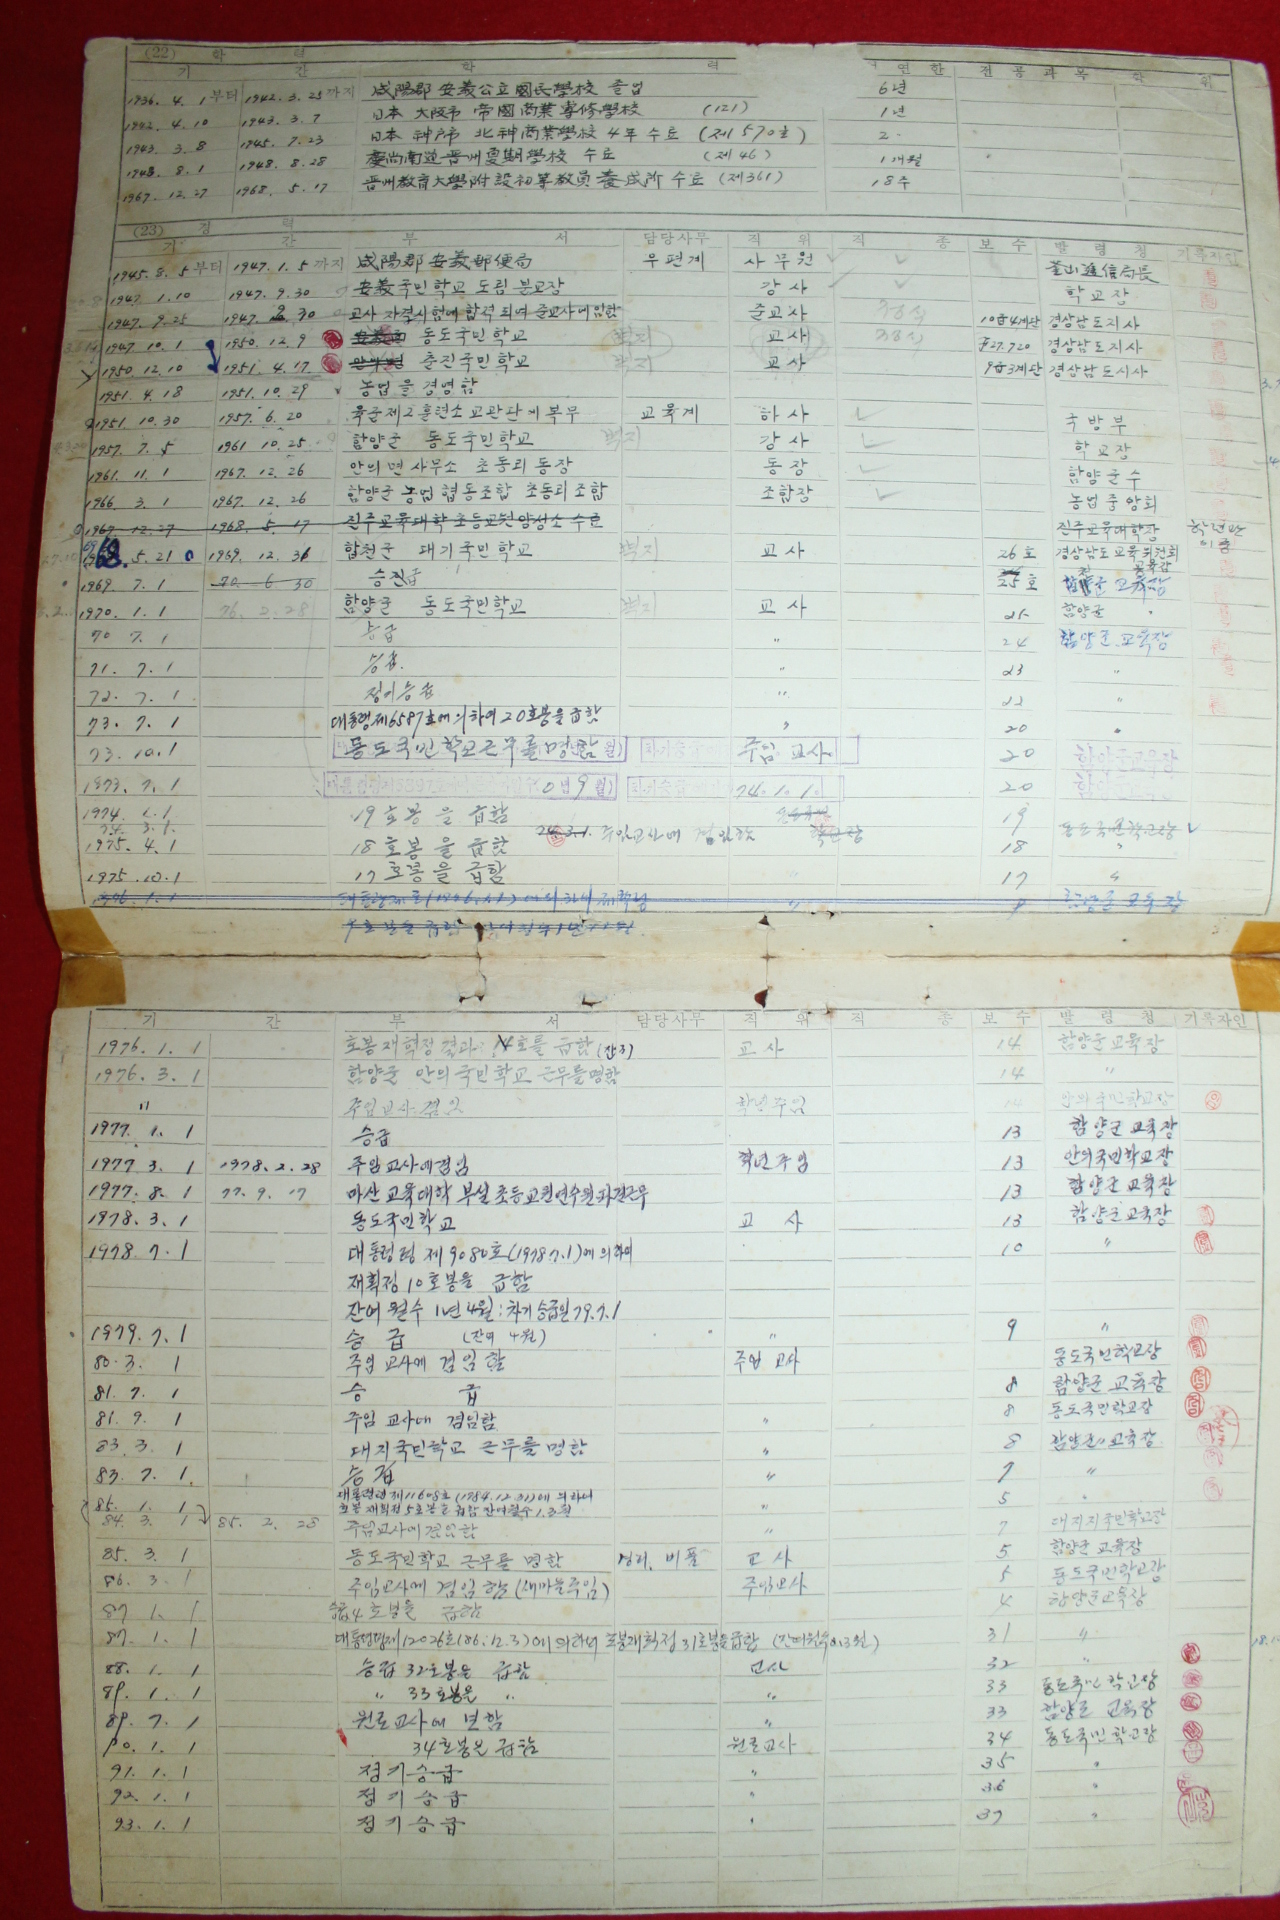 (22) 학 력
기 간 학 력 연한 전공과목 학 위
1936. 4. 1 부터 1942. 3. 25 까지 咸陽郡 安義公立國民學校 졸업 6년
1942. 4. 10 1943. 3. 7 日本 大阪市 帝國商業專修學校 (121) 1년
1943. 3. 8 1945. 7. 23 日本 神戶市 北神商業學校 4年 수료 (제1570호) 2
1948. 8. 1 1948. 8. 28 慶尙南道 晋州夏期學校 수료 (제46) 1개월
1967. 12. 27 1968. 5. 17 晋州敎育大學附設初等敎員養成所 수료 (제361) 18주
(23) 경 력
기 간 부 서 담당사무 직 위 직 종 보 수 발 령 청 기록자인
1945. 8. 5 부터 1947. 1. 5 까지 咸陽郡 安義郵便局 우편계 사무원 釜山遞信局長
1947. 1. 10 1947. 9. 30 安義국민학교 도림분교장 강사 학교장
1947. 9. 25 1947. 9. 30 교사 자격시험에 합격되여 준교사에임함 준교사 10급4계단 경상남도지사
1947. 10. 1 1950. 12. 9 동도국민학교 교사 경상남도지사
1950. 12. 10 1951. 4. 17 춘진국민학교 교사 9급3계단 경상남도지사
1951. 4. 18 1951. 10. 29 농업을 경영함
1951. 10. 30 1957. 6. 20 육군제2훈련소 교관단에 복무 교육계 하사 국방부
1957. 7. 5 1961. 10. 25 함양군 동도국민학교 강사 학교장
1961. 11. 1 1967. 12. 26 안의면사무소 초동리동장 동장 함양군수
1966. 3. 1 1967. 12. 26 함양군 농업협동조합 초동리조합 조합장 농업중앙회
1967. 12. 27 1968. 5. 17 진주교육대학 초등교원양성소 수료 진주교육대학장
5. 21 1969. 12. 31 합천군 대기국민학교 교사 26호 경상남도교육위원회
1969. 7. 1 70. 6. 30 승진급 25호 교육장
1970. 1. 1 76. 2. 28 함양군 동도국민학교 교사 25 함양군 "
70 7. 1 승급 " 24 함양군교육장
71. 7. 1 승급 " 23 "
72. 7. 1 정기승급 " 22 "
73. 7. 1 대통령제6587호에 의하여 20호봉을 급함 " 20 "
73. 10. 1 동도국민학교근무를 명함 주임 교사 20 함양군교육장
1973. 7. 1 9월) 74. 10. 1 20 함양
1974. 1. 1 19호봉을 급함 19
74. 3. 1. 주임교사에 겸임함
1975. 4. 1 18호봉을 급함 18 "
1975. 10. 1 17호봉을 급함 17 "
기 간 부 서 담당사무 직 위 직 종 보 수 발 령 청 기록자인
1976. 1. 1 호봉재획정결과 14호를 급함 교사 14 함양군교육장
1976. 3. 1 함양군 안의국민학교 근무를명함 14 "
" 주임교사 겸임 학년주임 14 안의국민학교장
1977. 1. 1 승급 13 함양군교육장
1977 3. 1 1978. 2. 28 주임교사에겸임 학년주임 13 안의국민학교장
1977. 8. 1 77. 9. 17 마산교육대학 부설초등교원연수원파견근무 13 함양군교육장
1978. 3. 1 동도국민학교 교 사 13 함양군교육장
1978. 7. 1 대통령령 제9080호(1978.7.1)에 의하여 10 "
재획정 10호봉을 급함
잔여월수 1년4월: 차기승급일79.7.1
1979. 7. 1 승급 (잔여 4월) " 9 "
80. 3. 1 주임교사에 겸임함 주임 교사 동도국민학교장
81. 7. 1 승 급 8 함양군교육장
81. 9. 1 주임교사에 겸임함 " 8 동도국민학교장
83. 3. 1 대지국민학교 근무를 명함 " 8 함양군교육장
83. 7. 1. 승급 " 7 "
85. 1. 1 대통령령제11608호(1984.12.31)에 의하여 " 5 "
호봉재획정 5호봉을 급함 잔여월수 1.3월
84. 3. 1 85. 2. 28 주임교사에겸임함 " 7 대지국민학교장
85. 3. 1 동도국민학교 근무를 명함 경리, 비품 교 사 5. 함양군교육장
86. 3. 1 주임교사에 겸임함(새마을주임) 주임교사 5 동도국민학교장
87 1. 1 승급4호봉을 급함 4 함양군교육장
87. 1. 1 대통령령제12026호(86.12.3)에 의하여 호봉재획정 31호봉을급함 31 "
88. 1. 1 승급 32호봉을 급함 교사 32 "
89. 1. 1 " 33호봉을 " " 33 동도국민학교장
89. 7. 1 원로교사에 면함 " 33 함양군 교육장
90. 1. 1 34호봉을 급함 원로교사 34 동도국민학교장
91. 1. 1 정기승급 " 35 "
92. 1. 1 정기승급 " 36 "
93. 1. 1 정기승급 " 37 "